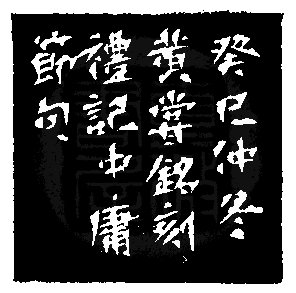 癸巳仲冬
黄嘗銘刻
禮記中庸
節句